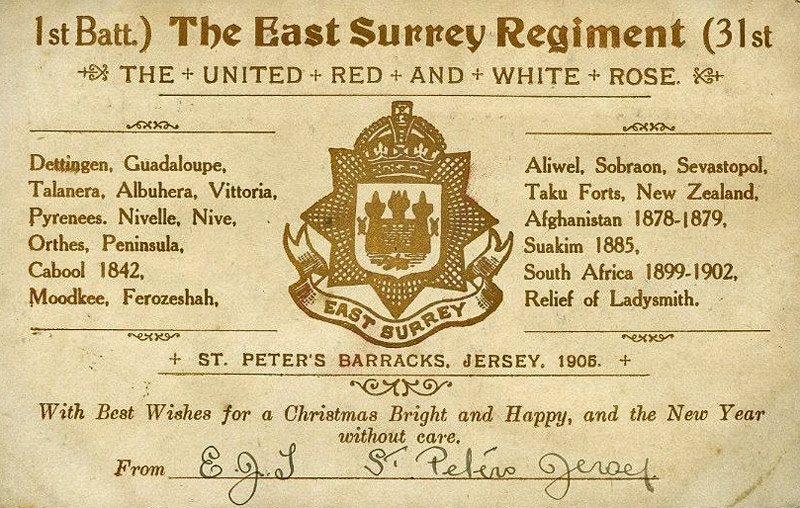 1st Batt.) The East Surrey Regiment (31st
THE + UNITED + RED + AND + WHITE + ROSE.
Dettingen, Guadaloupe,
Talanera, Albuhera, Vittoria,
Pyrenees. Nivelle, Nive,
Orthes, Peninsula,
Cabool 1842,
Moodkee, Ferozeshah,
EAST SURREY
Aliwel, Sobraon, Sevastopol,
Taku Forts, New Zealand,
Afghanistan 1878-1879,
Suakim 1885,
South Africa 1899-1902,
Relief of Ladysmith.
+ ST. PETER'S BARRACKS, JERSEY. 1905. +
With Best Wishes for a Christmas Bright and Happy, and the New Year
without care.
From E.J.S St Peters Jersey.